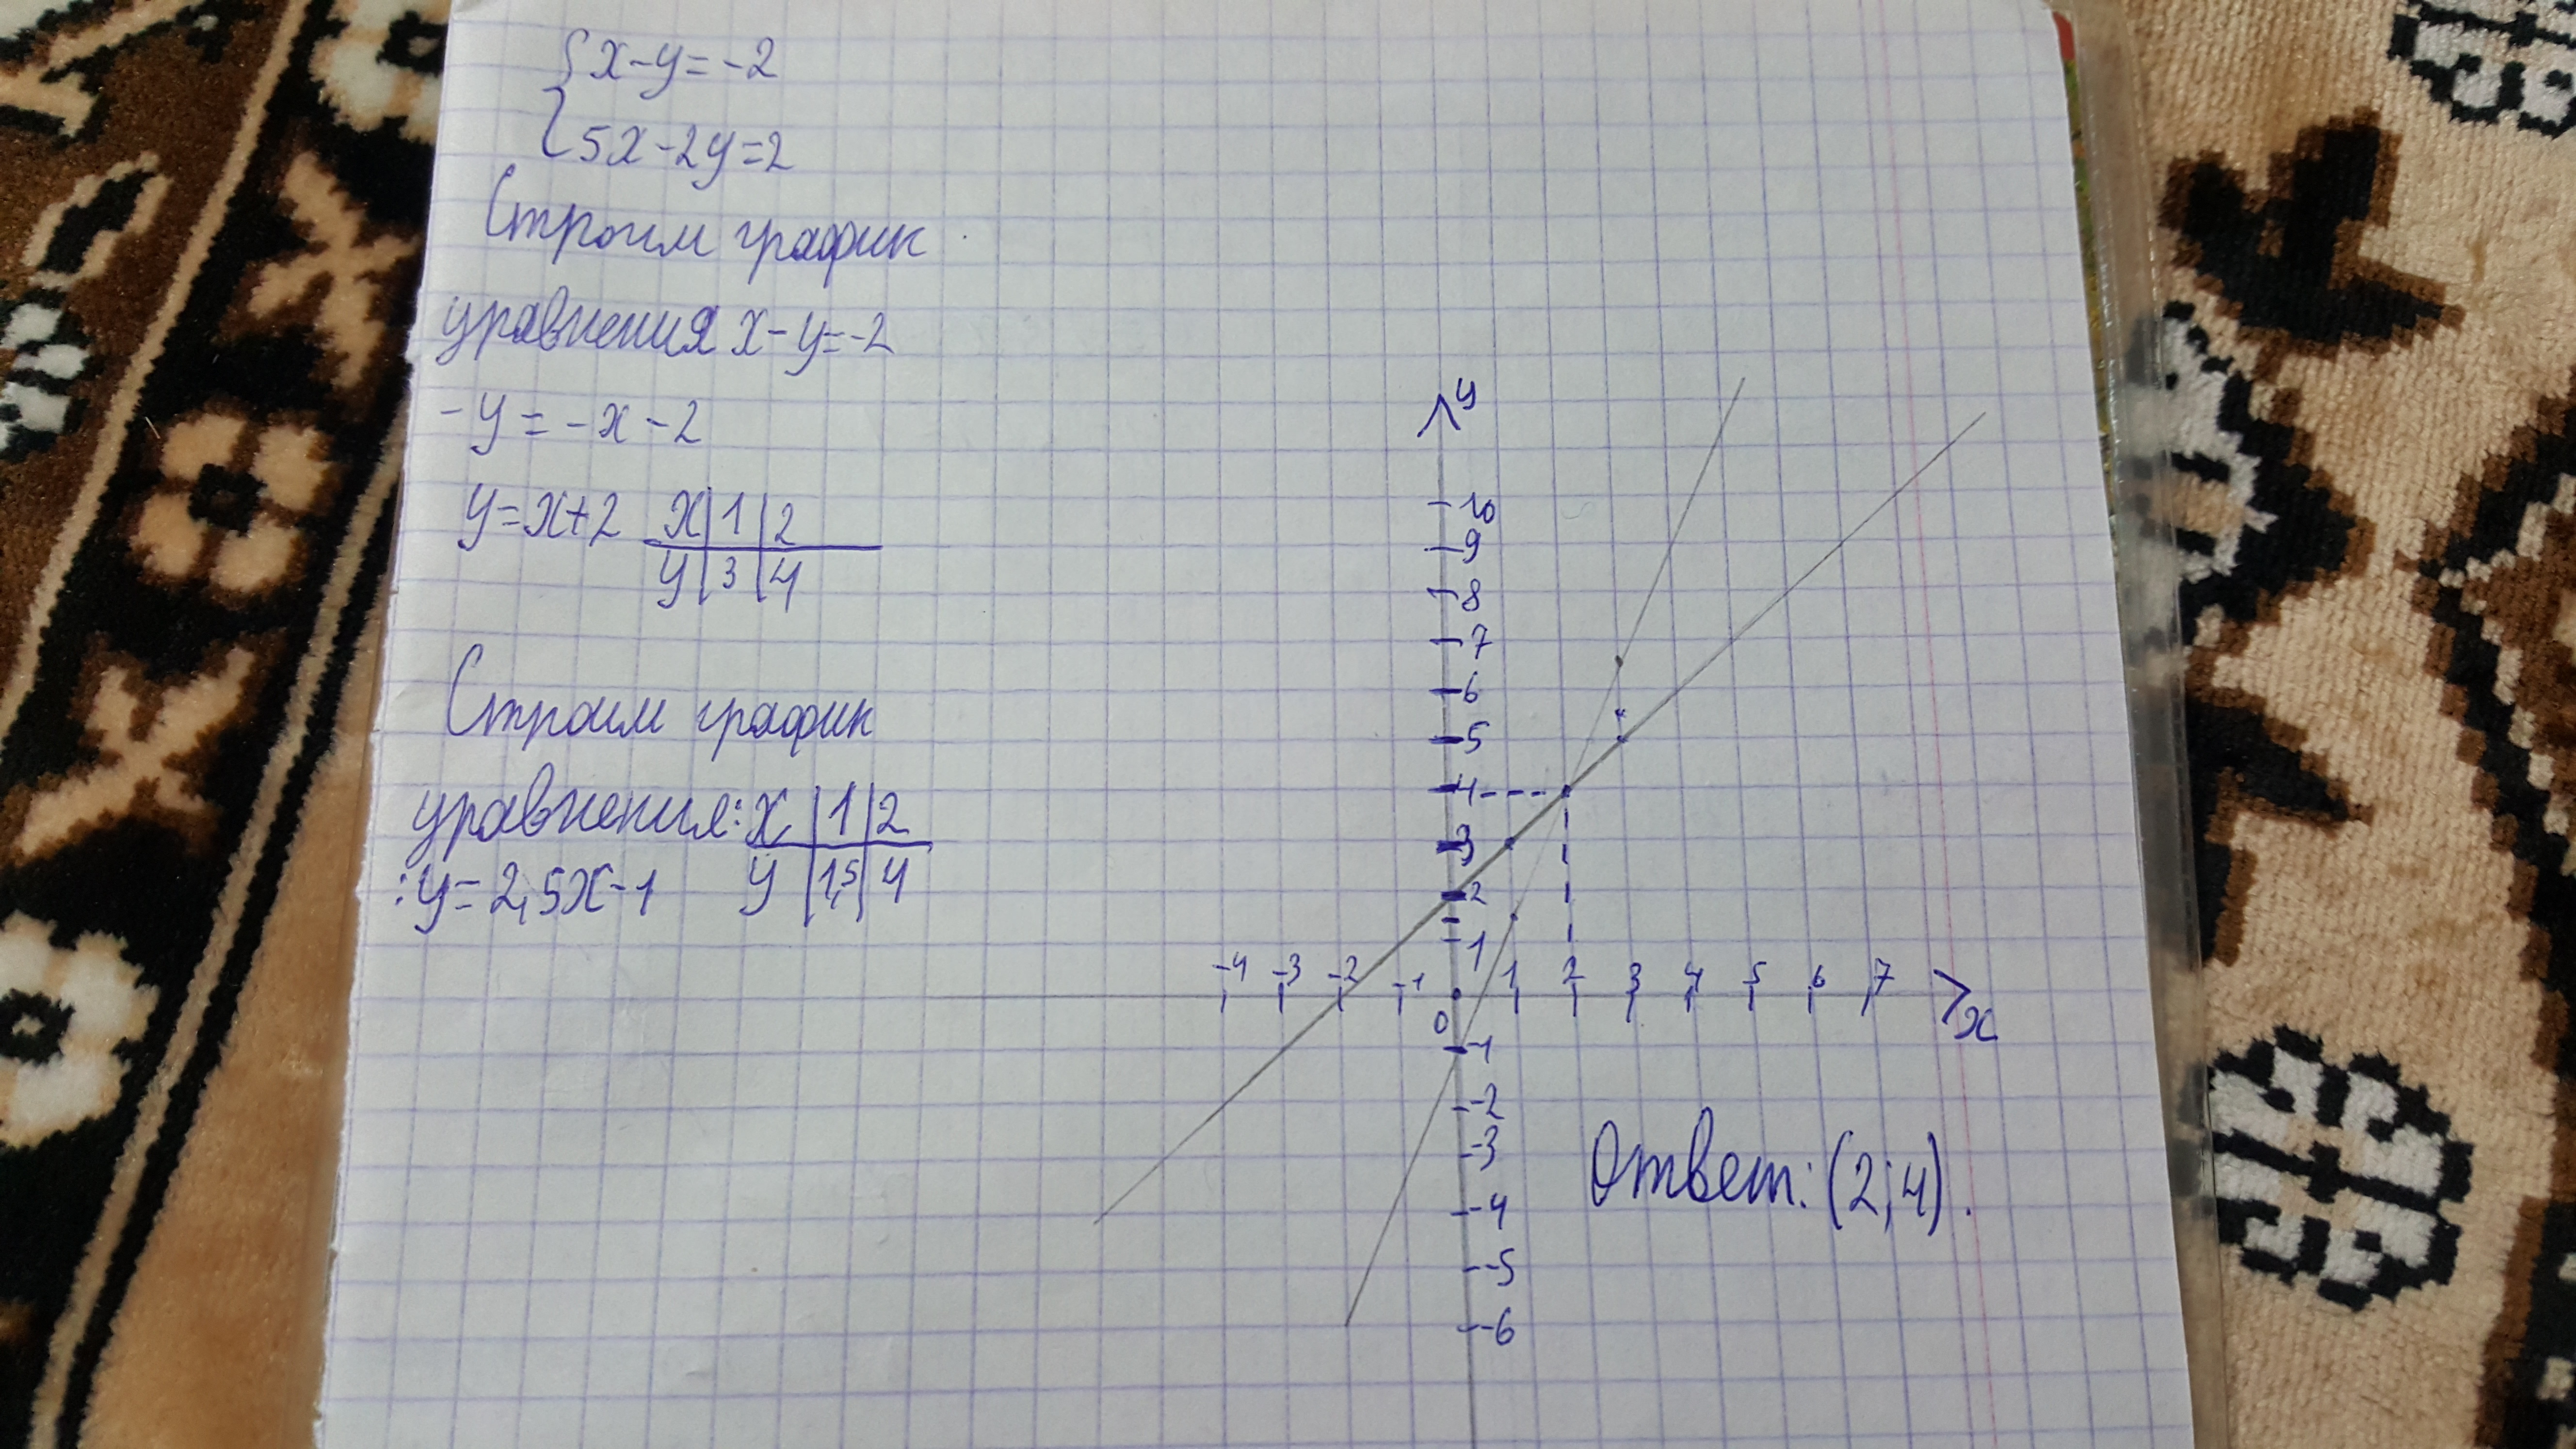 { x-y=-2
5x-2y=2
Строим график
уравнения x-y=-2
-y=-x-2
y=x+2 x|1|2
y|3|4
Строим график
уравнения: x|1|2
:y=2,5x-1 y|1,5|4
y
10
9
8
7
6
5
4
3
2
1
-4 -3 -2 -1 1 2 3 4 5 6 7
0 x
-1
-2
-3
-4
-5
-6
Ответ: (2;4).